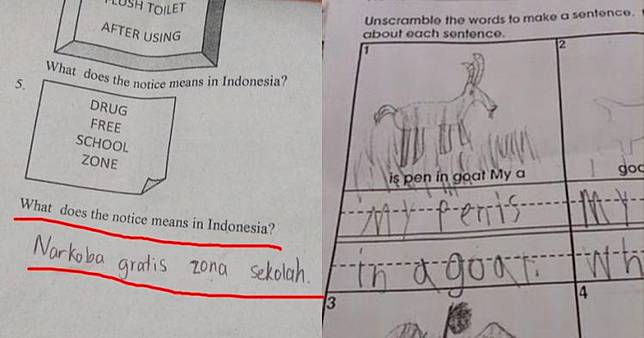 FLUSH TOILET
AFTER USING
What does the notice means in Indonesia?
5.
DRUG
FREE
SCHOOL
ZONE
What does the notice means in Indonesia?
Narkoba gratis zona sekolah.
Unscramble the words to make a sentence.
about each sentence.
1
2
is pen in goat My a
my penis
My
in a goat.
Wh
3
4